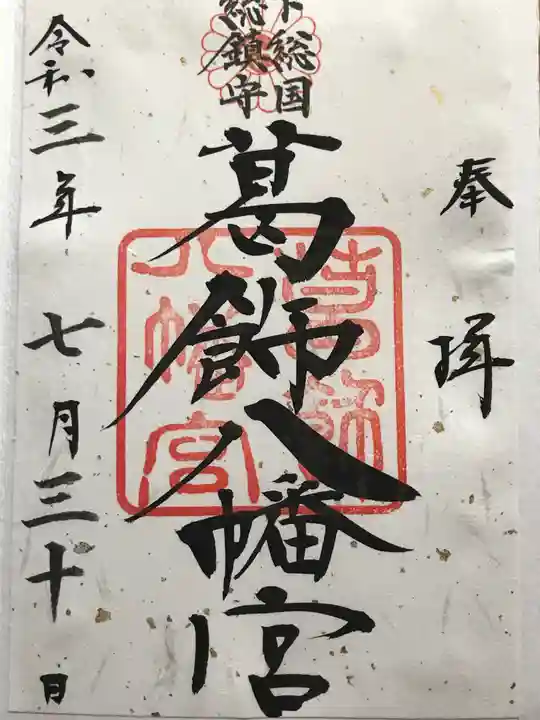 奉拝
下総国
総鎮守
葛飾八幡宮
葛飾
八幡宮
令和三年七月三十日